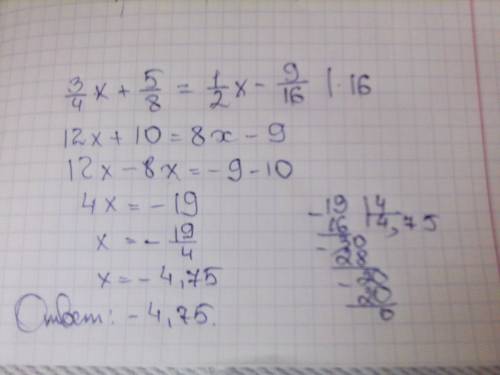 3/4 x + 5/8 = 1/2 x - 9/16 | · 16
12x + 10 = 8x - 9
12x - 8x = -9 - 10
4x = -19
x = - 19/4
x = - 4,75
Ответ: - 4,75.
- 19 | 4
16 | 4,75
- 30
28
- 20
20
0